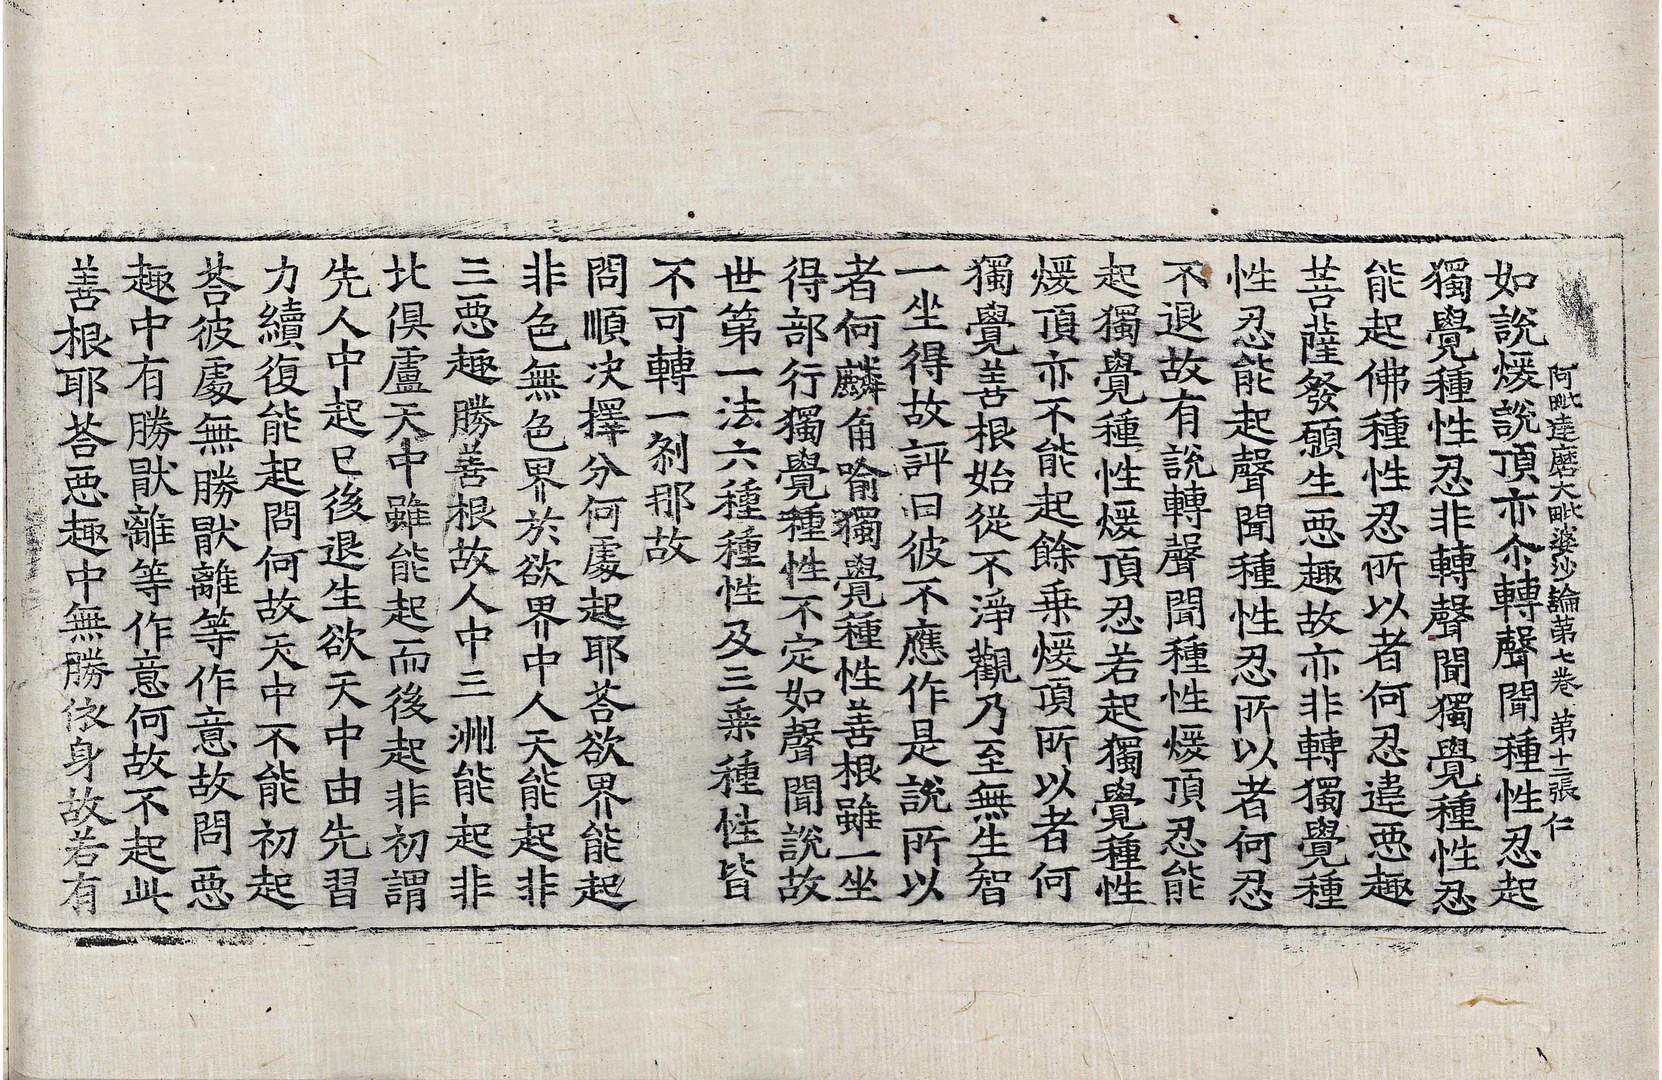 阿毗達磨大毗婆沙論第七卷 第十二張 仁
如說煖說頂亦尒轉聲聞種性忍起
獨覺種性忍非轉聲聞獨覺種性忍
能起佛種性忍所以者何忍違惡趣
菩薩發願生惡趣故亦非轉獨覺種
性忍能起聲聞種性忍所以者何忍
不退故有說轉聲聞種性煖頂忍能
起獨覺種性煖頂忍若起獨覺種性
煖頂亦不能起餘乗煖頂所以者何
獨覺善根始從不淨觀乃至無生智
一坐得故評曰彼不應作是說所以
者何麟角喻獨覺種性善根雖一坐
得部行獨覺種性不定如聲聞說故
世第一法六種種性及三乗種性皆
不可轉一刹那故
問順决擇分何處起耶荅欲界能起
非色無色界於欲界中人天能起非
三惡趣勝善根故人中三洲能起非
北俱盧天中雖能起而後起非初謂
先人中起已後退生欲天中由先習
力續復能起問何故天中不能初起
荅彼處無勝猒離等作意故問惡
趣中有勝猒離等作意何故不起此
善根耶荅惡趣中無勝依身故若有